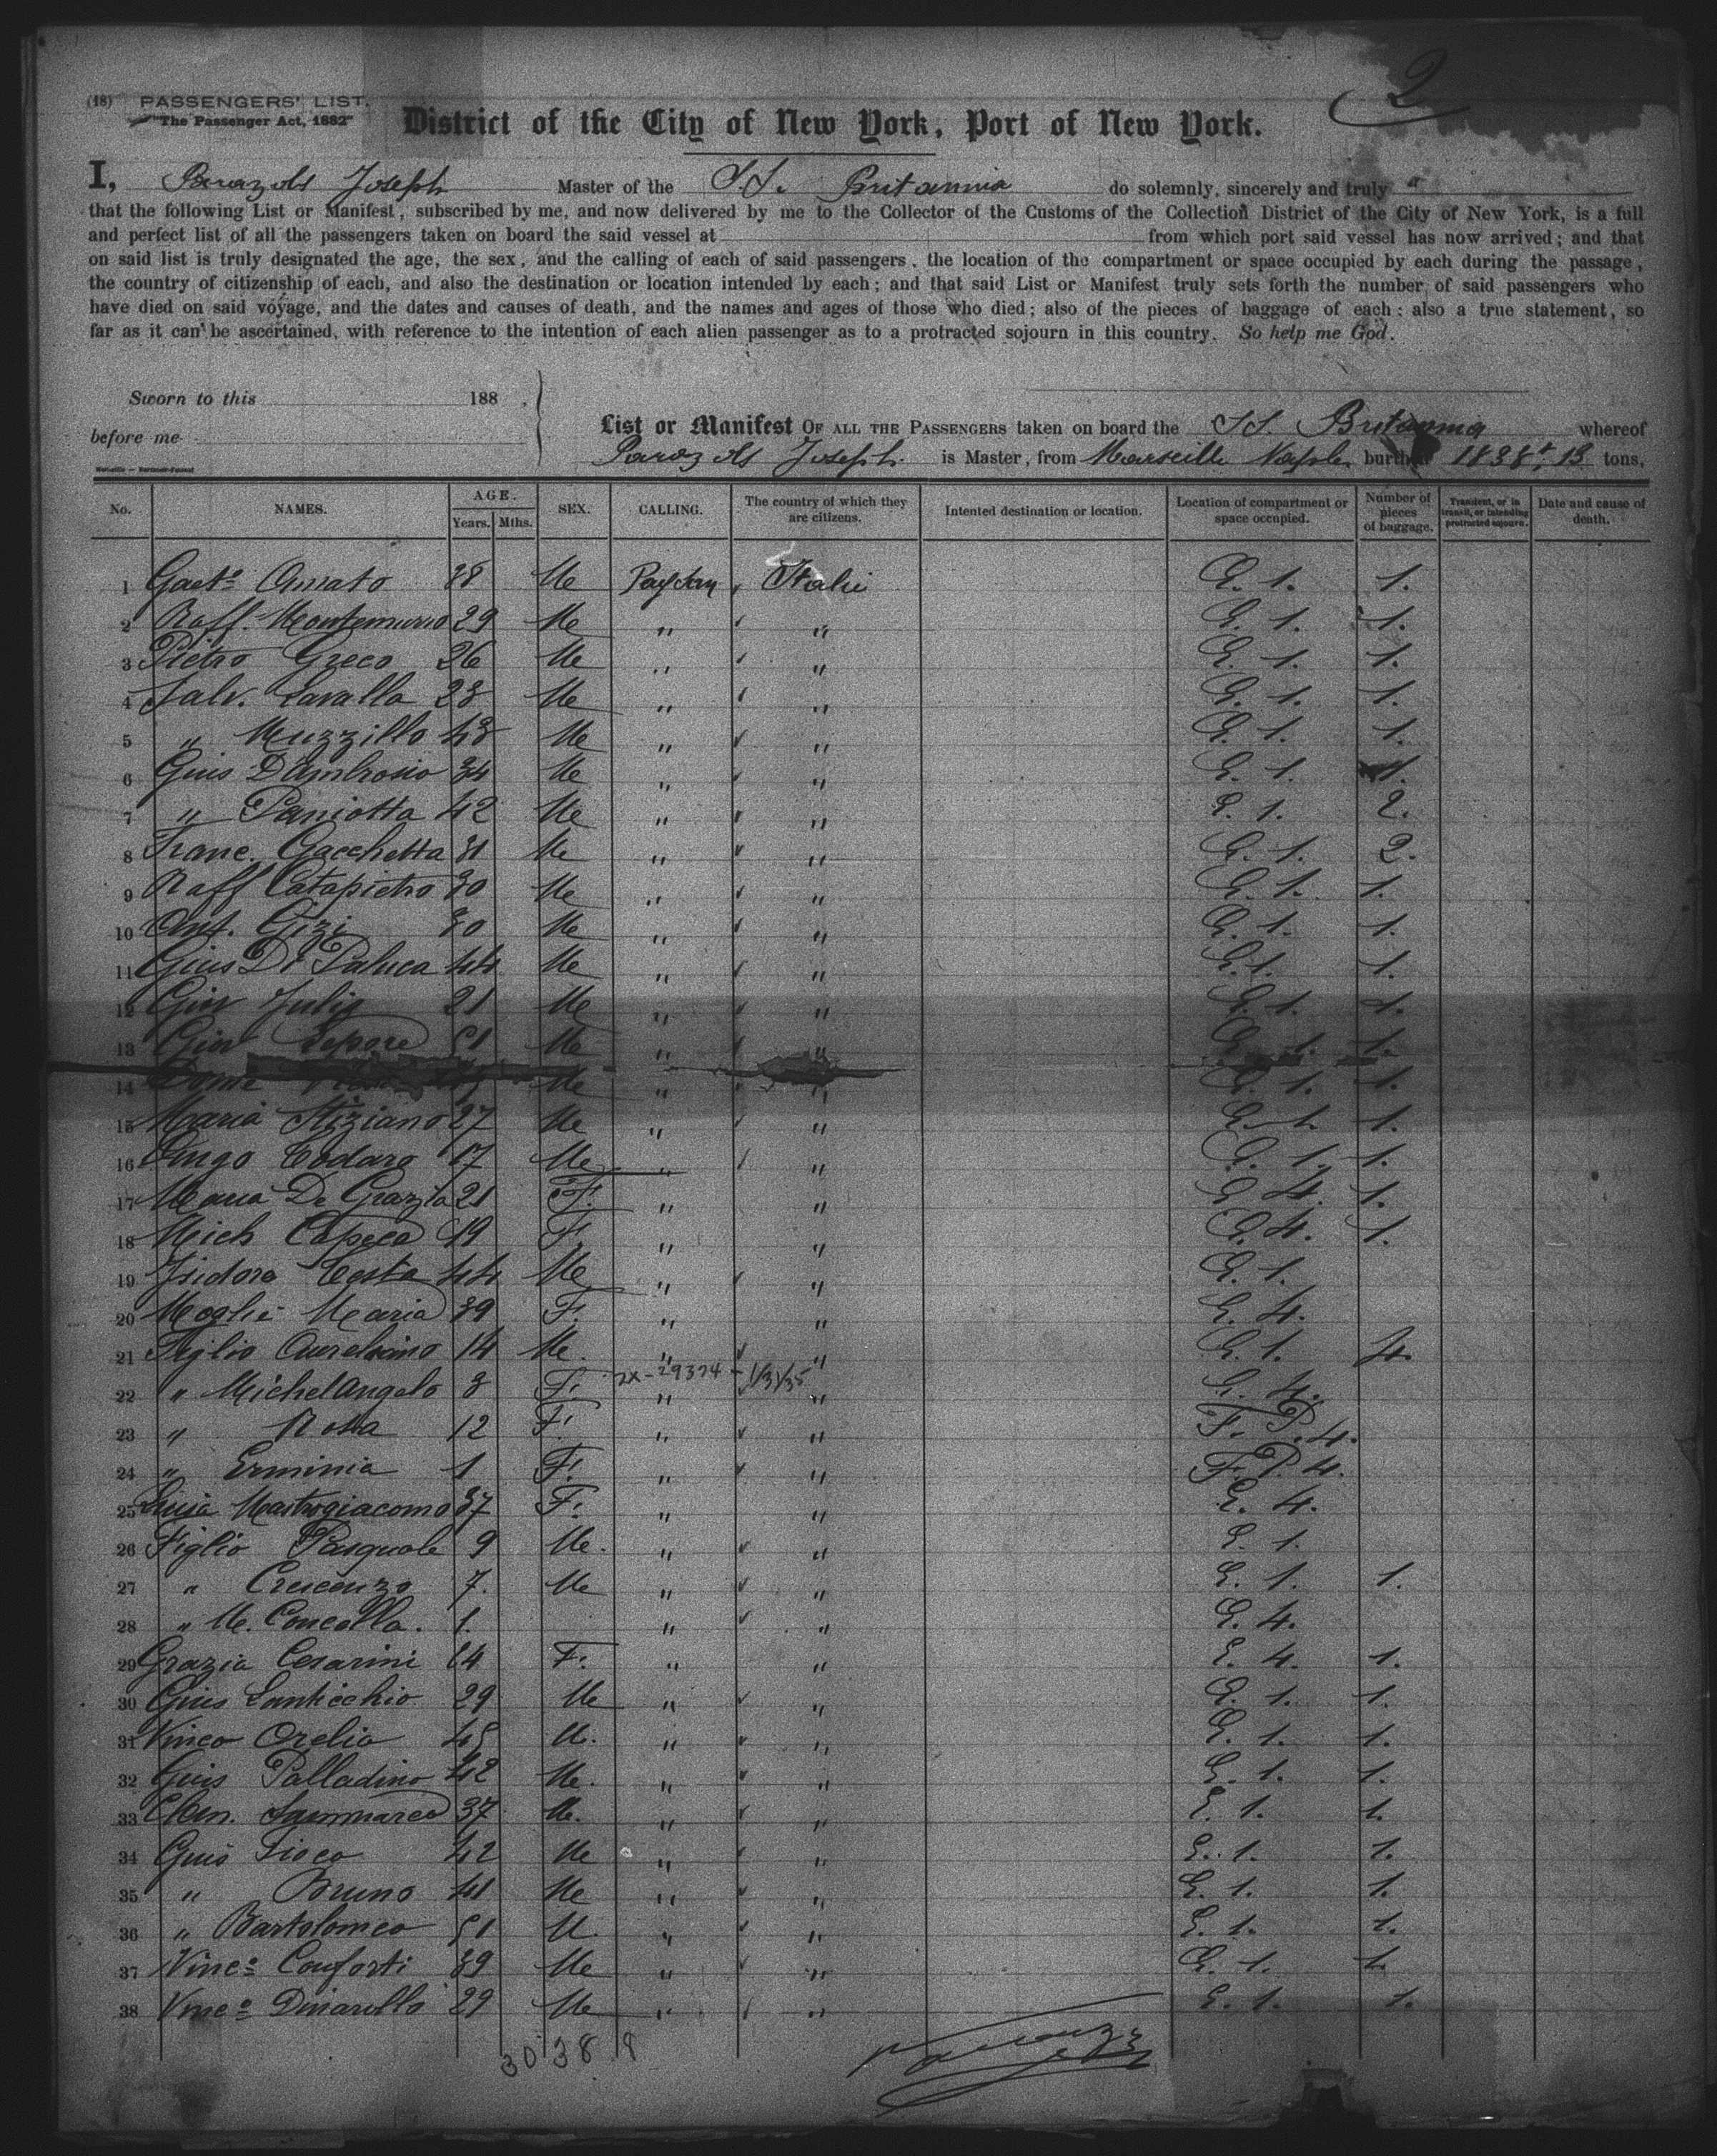 2
(18) PASSENGERS' LIST.
"The Passenger Act, 1882"
District of the City of New York, Port of New York.
I, Joseph Master of the S.S. Britannia do solemnly, sincerely and truly
that the following List or Manifest, subscribed by me, and now delivered by me to the Collector of the Customs of the Collection District of the City of New York, is a full
and perfect list of all the passengers taken on board the said vessel at from which port said vessel has now arrived; and that
on said list is truly designated the age, the sex, and the calling of each of said passengers, the location of the compartment or space occupied by each during the passage,
the country of citizenship of each, and also the destination or location intended by each; and that said List or Manifest truly sets forth the number of said passengers who
have died on said voyage, and the dates and causes of death, and the names and ages of those who died; also of the pieces of baggage of each: also a true statement, so
far as it can be ascertained, with reference to the intention of each alien passenger as to a protracted sojourn in this country. So help me God.
Sworn to this 188 .
before me
List or Manifest OF ALL THE PASSENGERS taken on board the SS. Britannia whereof
Joseph is Master, from Marseille Naples burthen 1838t,13 tons,
No. NAMES. AGE. Years. Mths. SEX. CALLING. The country of which they are citizens. Intented destination or location. Location of compartment or space occupied. Number of pieces of baggage. Transient, or in transit, or intending protracted sojourn. Date and cause of death.
1 Gaeto Amato 38 Me Italie E. 1. 1.
2 Raff. Montemurro 29 Me " " E. 1. 1.
3 Pietro Greco 26 Me " " E. 1. 1.
4 Salv. Lavalla 28 Me " " E. 1. 1.
5 " Muzzillo 43 Me " " E. 1. 1.
6 Gius D'Ambrosio 34 Me " " E. 1. 1.
7 " Paniotta 42 Me " " E. 1. 2.
8 Franc. Gacchetta 31 Me " " E. 1. 2.
9 Raff Catapietro 30 Me " " E. 1. 1.
10 Ant. Gizi 30 Me " " E. 1. 1.
11 Gius De Paluca 44 Me " " E. 1. 1.
12 Giov Julio 21 Me " " E. 1. 1.
13 Giov Lepore 51 Me " " E. 1. 1.
14 Me " " E. 1. 1.
15 Maria Stiziano 27 Me " " E. 1. 1.
16 Ango Codaro 17 Me " " E. 1. 1.
17 Maria De Grazia 21 F. " " E 4. 1.
18 Mich Capeca 19 F. " " E. 4. 1.
19 Isidoro Costa 44 Me " " E. 1.
20 Moglie Maria 39 F. " " E. 4.
21 Figlio Aureliano 14 Me. " " E. 1. 4.
2x-29374 - 1/31/35
22 " Michelangelo 3 F. " " E. 4.
23 " Rosa 12 F. " " F. P. 4.
24 " Erminia 1 F. " " F. P. 4.
25 Luisa Mastrogiacomo 37 F. " " E. 4.
26 Figlio Pasquale 9 Me. " " E. 1.
27 " Crescenzo 7. Me " " E. 1. 1.
28 " M. Concetta. 1. " " E. 4.
29 Grazia Cesarini 64 F. " " E. 4. 1.
30 Gius Santicchio 29 Me " " E. 1. 1.
31 Vinco Orelia 45 M. " " E. 1. 1.
32 Gius Palladino 42 Me. " " E. 1. 1.
33 Clem. Sammarco 37 M. " " E. 1. 1.
34 Gius Fioco 42 Me " " E. 1. 1.
35 " Bruno 41 Me " " E. 1. 1.
36 " Bartolomeo 51 M. " " E. 1. 1.
37 Vinco Conforti 39 Me " " E. 1. 1.
38 Vinco Dinarello 29 Me " " E. 1. 1.
30 38 8